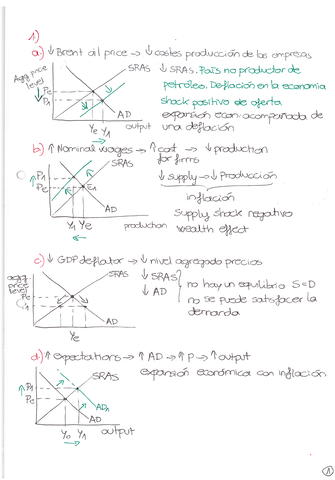 1)
a) ↓ Brent oil price → ↓ costes producción de las empresas
Agg price
level
SRAS
↓ SRAS. País no productor de
petróleo. Deflación en la economía
shock positivo de oferta
expansión econ. acompañada de
una deflación
Pe
P1
AD
Ye Y1
output
b) ↑ Nominal wages → ↑ cost → ↓ production
for firms
SRAS
↓ supply → ↓ Producción
inflación
Supply shock negativo
wealth effect
P1
Pe
E1
AD
Y1 Ye
production
c) ↓ GDP deflator → ↓ nivel agregado precios
agg.
price
level
SRAS
↓ SRAS
↓ AD
no hay un equilibrio S=D
no se puede satisfacer la
demanda
Pe
AD
Ye
d) ↑ expectations → ↑ AD → ↑ P → ↑ output
expansión económica con inflación
SRAS
P1
Pe
AD1
AD
Y0 Y1
output
1